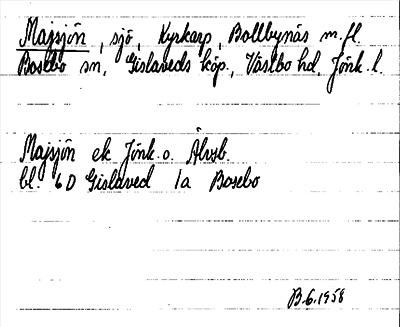 Majsjön, sjö, Kyrkarp, Bollbynäs m.fl.
Bosebo sn, Gislaveds köp., Västbo hd, Jönk. l.
Majsjön ek Jönk. o. Älvsb.
bl. 6D Gislaved 1a Bosebo
B.6.1958